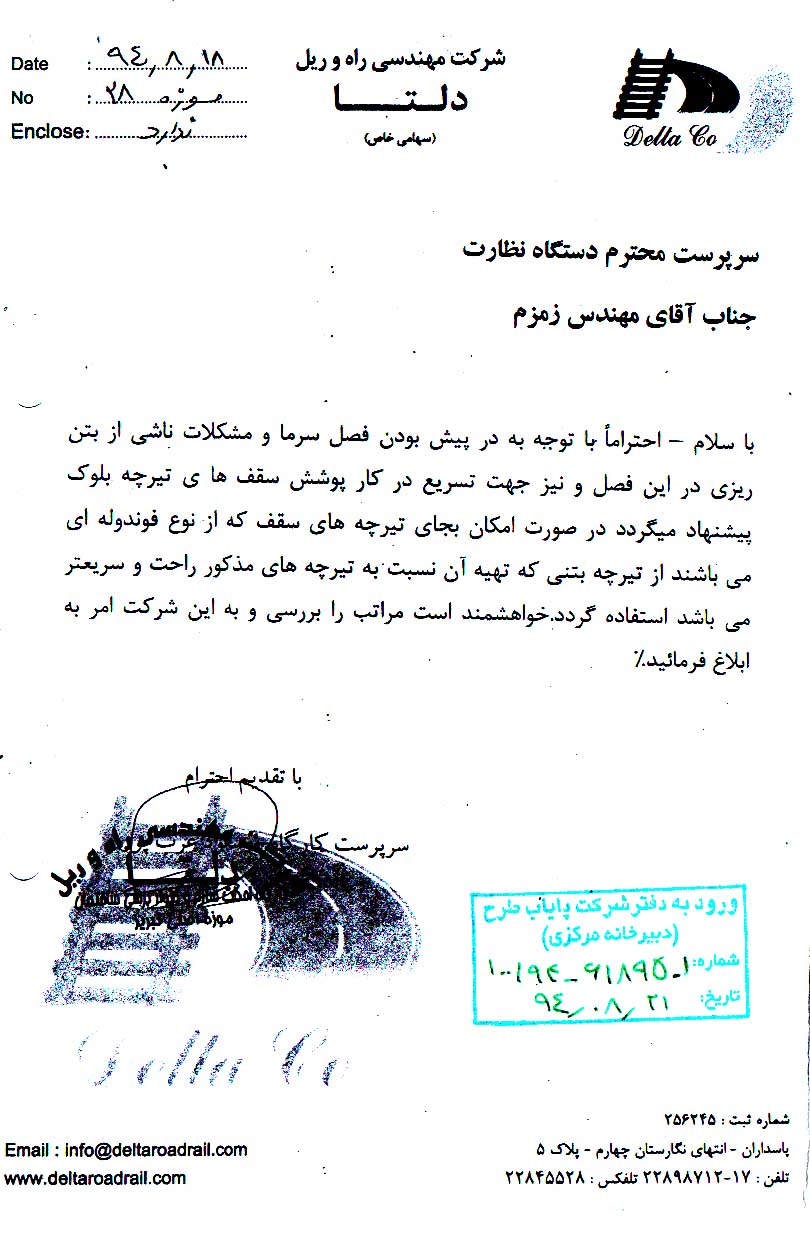 Date : ۹۴,۸,۱۸
No : موزه ۲۸
Enclose: ندارد
شرکت مهندسی راه و ریل
دلتا
(سهامی خاص)
Delta Co
سرپرست محترم دستگاه نظارت
جناب آقای مهندس زمزم
با سلام – احتراماً با توجه به در پیش بودن فصل سرما و مشکلات ناشی از بتن
ریزی در این فصل و نیز جهت تسریع در کار پوشش سقف ها ی تیرچه بلوک
پیشنهاد میگردد در صورت امکان بجای تیرچه های سقف که از نوع فوندوله ای
می باشند از تیرچه بتنی که تهیه آن نسبت به تیرچه های مذکور راحت و سریعتر
می باشد استفاده گردد.خواهشمند است مراتب را بررسی و به این شرکت امر به
ابلاغ فرمائید.٪
با تقدیم احترام
سرپرست کارگاه
مهندسی راه و ریل
دلتا
موزه
Delta Co
ورود به دفتر شرکت پایاب طرح
(دبیرخانه مرکزی)
شماره:
تاریخ: ۹۴/۰۸/۲۱
شماره ثبت : ۲۵۶۲۴۵
پاسداران - انتهای نگارستان چهارم - پلاک ۵
تلفن : ۱۷-۲۲۸۹۸۷۱۲ تلفکس : ۲۲۸۴۵۵۲۸
Email : info@deltaroadrail.com
www.deltaroadrail.com